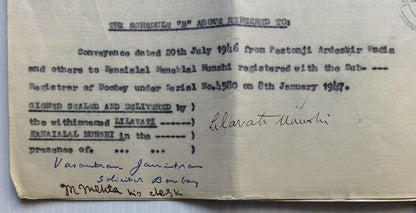 THE SCHEDULE "B" ABOVE REFERRED TO:
Conveyance dated 20th July 1946 from Pestonji Ardeshir Wadia
and others to Kanaialal Maneklal Munshi registered with the Sub- ---
Registrar of Bombay under Serial No.4580 on 8th January 1947.
SIGNED SEALED AND DELIVERED by )
the withinnamed LILAVATI ------)
KANAIALAL MUNSHI in the ------ )
presence of. ... ... ... )
Lilavati Munshi
Vasantram Jamietram
Solicitor Bombay
M Mehta his clerk